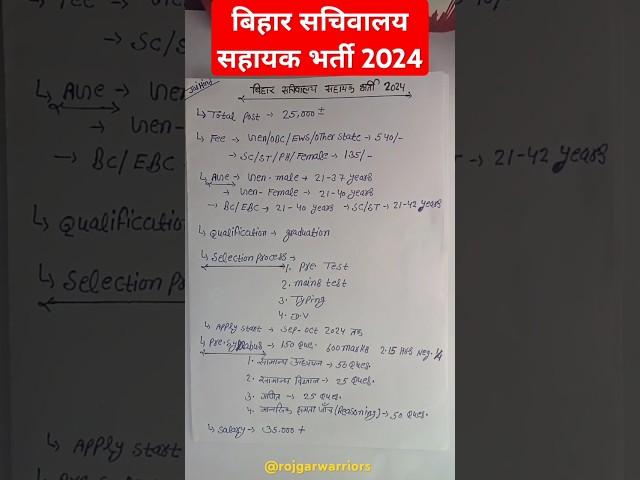 बिहार सचिवालय
सहायक भर्ती 2024
बिहार सचिवालय सहायक भर्ती 2024
↳ Total post → 25,000 ±
↳ Fee → Gen/OBC/EWS/other state → 540/-
→ SC/ST/PH/Female → 135/-
↳ Age → Gen- male → 21-37 years
→ Gen- Female → 21-40 years
→ BC/EBC → 21-40 years → SC/ST → 21-42 years
↳ Qualification → graduation
↳ Selection process →
1. Pre Test
2. mains test
3. Typing
4. D.V
↳ Apply start → Sep-Oct 2024 तक
↳ Pre-Syllabus → 150 Ques. 600 marks 2:15 HRS Neg. 1/4
1. सामान्य अध्ययन → 50 Ques.
2. सामान्य विज्ञान → 25 Ques.
3. गणित → 25 Ques.
4. मानसिक क्षमता जाँच (Reasoning) → 50 Ques.
↳ Salary → 35,000 +
@rojgarwarriors